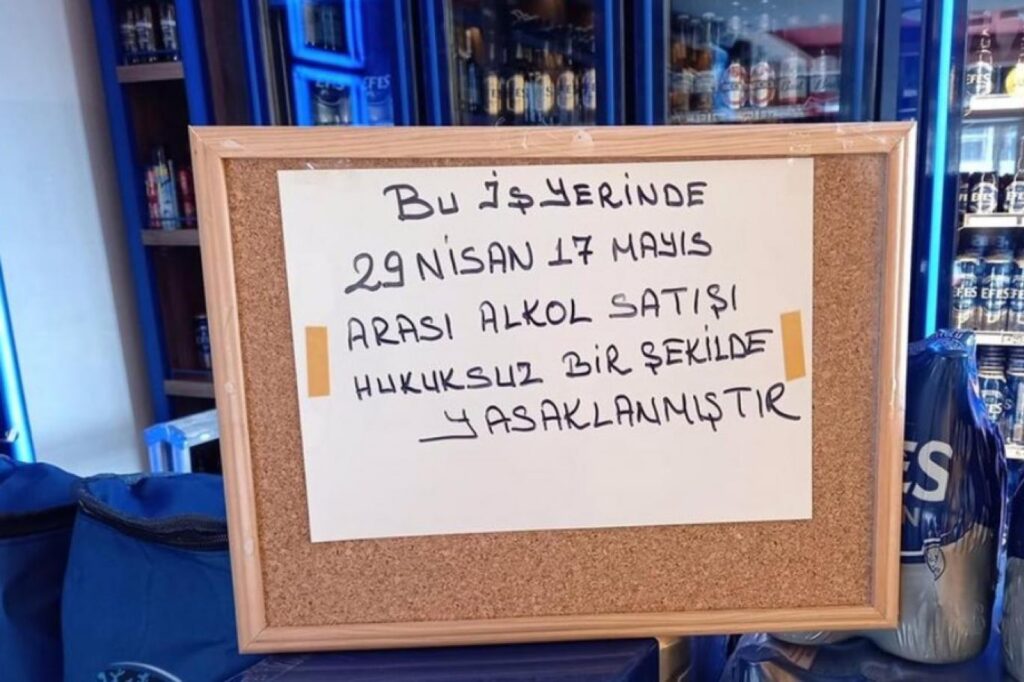 BU İŞ YERİNDE
29 NİSAN 17 MAYIS
ARASI ALKOL SATIŞI
HUKUKSUZ BİR ŞEKİLDE
YASAKLANMIŞTIR
EFES
EFES
EFES
EFES